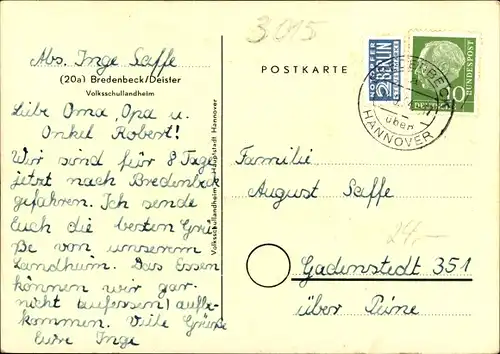 3015
Abs. Inge Saffe
(20a) Bredenbeck/Deister
Volksschullandheim
Liebe Oma, Opa u.
Onkel Robert!
Wir sind für 8 Tage
jetzt nach Bredenbek
gefahren. Ich sende
Euch die besten Grü-
ße von unserem
Landheim. Das Essen
können wir gar
nicht aufessen) aufbe-
kommen. Viele Grüße
Eure Inge
Volksschullandheim Hauptstadt Hannover
POSTKARTE
NOTOPFER
2 BERLIN
STEUERMARKE
DEUTSCHE
BUNDESPOST
über
HANNOVER
Familie
August Saffe
24,-
Gadenstedt 351
über Peine